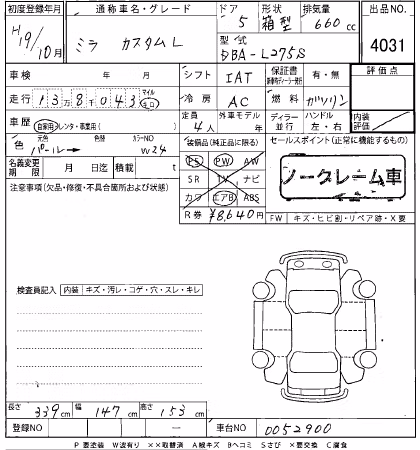 初度登録年月 通称車名・グレード ドア 形状 排気量 出品NO.
H19/10月 ミラ カスタムL 5 箱型 660cc 4031
型式
DBA-L275S
車検 年 月 シフト IAT 保証書 有・無 評価点
走行 138043 マイル キロ 冷房 AC 燃料 ガソリン
車歴 自家用・レンタ・事業用( ) 定員 4人 外車モデル 年 ディーラー 並行 ハンドル 左・右 内装評価
色 元色 パール 色替 カラーNO W24 装備品(純正品に限る) セールスポイント(正常に機能するもの)
PS PW AW
名義変更期限 月 日迄 積載 t SR TV ナビ ノークレーム車
注意事項(欠品・修復・不具合箇所および状態) カワ エアB ABS
R券 ¥8640 FW キズ・ヒビ割・リペア跡・X要
検査員記入 内装 キズ・汚レ・コゲ・穴・スレ・キレ
長さ 339cm 幅 147cm 高さ 153cm
登録NO 車台NO 0052900
P 要塗装 W波有り ××取替済 A線キズ Bヘコミ Sさび ×要交換 C腐食